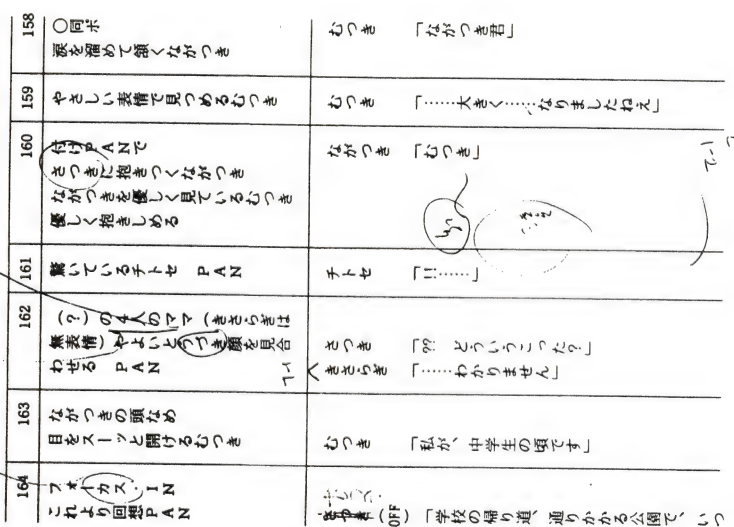 158
○同ポ
涙を溜めて頷くながつき
むつき 「ながつき君」
159
やさしい表情で見つめるむつき
むつき 「……大きく……なりましたねえ」
160
付けPANで
さつきに抱きつくながつき
ながつきを優しく見ているむつき
優しく抱きしめる
ながつき 「むつき」
161
驚いているチトセ PAN
チトセ 「!!……」
162
(?)の4人のママ(きさらぎは
無表情)やよいとうづき顔を見合
わせる PAN
さつき 「?? どういうこった?」
きさらぎ 「……わかりません」
163
ながつきの頭なめ
目をスーッと開けるむつき
むつき 「私が、中学生の頃です」
164
フォーカス・IN
これより回想PAN
(OFF) 「学校の帰り道、通りかかる公園で、いつ